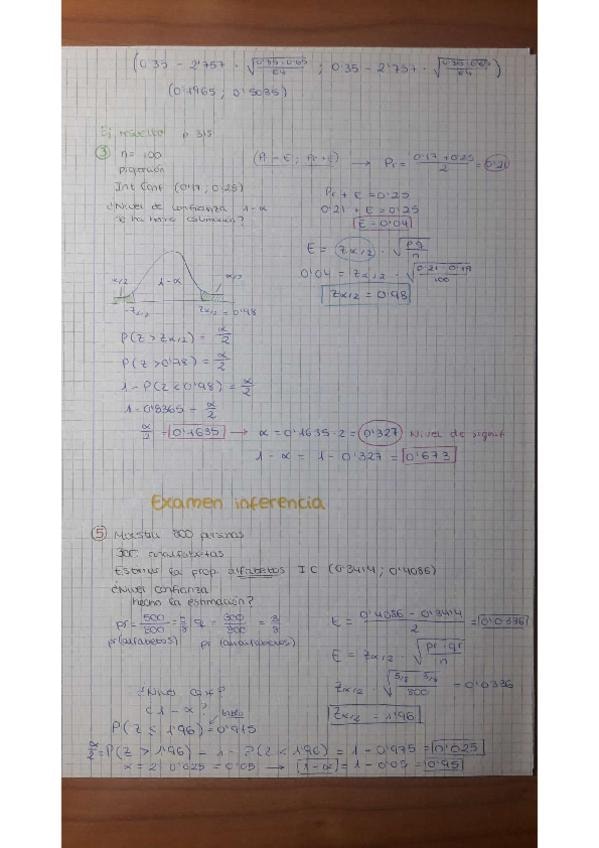 (0'35 - 2'757 · √(0'35·0'65/64) ; 0'35 - 2'757 · √(0'35·0'65/64))
(0'1965 ; 0'5035)
Ej resuelto p 315
③ n = 100
proporción
Int Conf (0'17 ; 0'25)
¿Nivel de confianza 1-α
se ha hecho estimación?
(Pr - E ; Pr + E) → Pr = (0'17 + 0'25)/2 = 0'21
Pr + E = 0'25
0'21 + E = 0'25
E = 0'04
E = Zα/2 · √(pq/n)
0'04 = Zα/2 · √(0'21 · 0'79/100)
Zα/2 = 0'98
α/2 1-α α/2
-Zα/2 Zα/2 = 0'98
P(Z > Zα/2) = α/2
P(Z > 0'98) = α/2
1 - P(Z < 0'98) = α/2
1 - 0'8365 = α/2
α/2 = 0'1635 → α = 0'1635 · 2 = 0'327 Nivel de signif
1 - α = 1 - 0'327 = 0'673
Examen inferencia
⑤ Muestra 800 personas
300 analfabetas
Estimar la prop. alfabetos I C (0'3414 ; 0'4086)
¿Nivel confianza
hecho la estimación?
pr = 500/800 = 5/8 qr = 300/800 = 3/8
pr(alfabetos) pr(analfabetos)
E = (0'4086 - 0'3414)/2 = 0'0336
E = Zα/2 · √(pr·qr/n)
Zα/2 · √(5/8 · 3/8/800) = 0'0336
Zα/2 = 1'96
¿Nivel conf?
¿1 - α?
P(Z ≤ 1'96) = 0'975
α/2 = P(Z > 1'96) = 1 - P(Z < 1'96) = 1 - 0'975 = 0'025
α = 2 · 0'025 = 0'05 → 1-α = 1 - 0'05 = 0'95